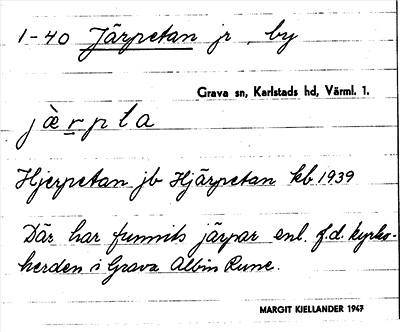 1-40 Järpetan jr, by
Grava sn, Karlstads hd, Värml. 1.
jæ̀rpta
Hjerpetan jb Hjärpetan kb 1939
Där har funnits järpar enl. f.d. kyrko-
herden i Grava Albin Rune.
MARGIT KIELLANDER 1947